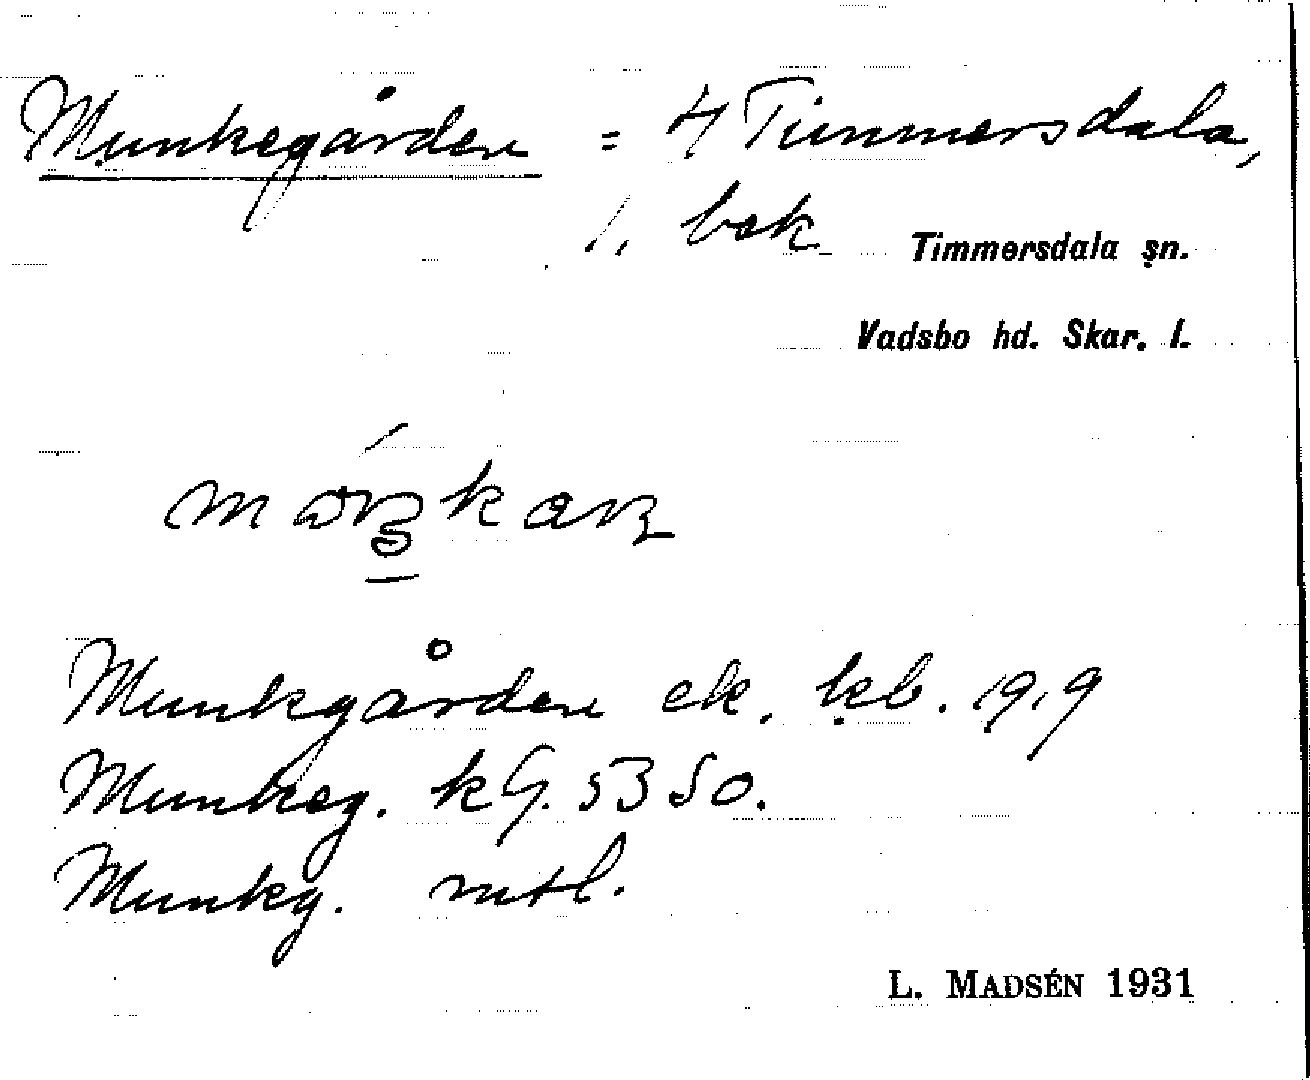 Munkegården = 4 Timmersdala,
1, bek
Timmersdala sn.
Vadsbo hd. Skar. l.
Munkgården ek. kb. 1919
Munkeg. kG. 5350.
Munkg. mtl.
L. MADSÉN 1931